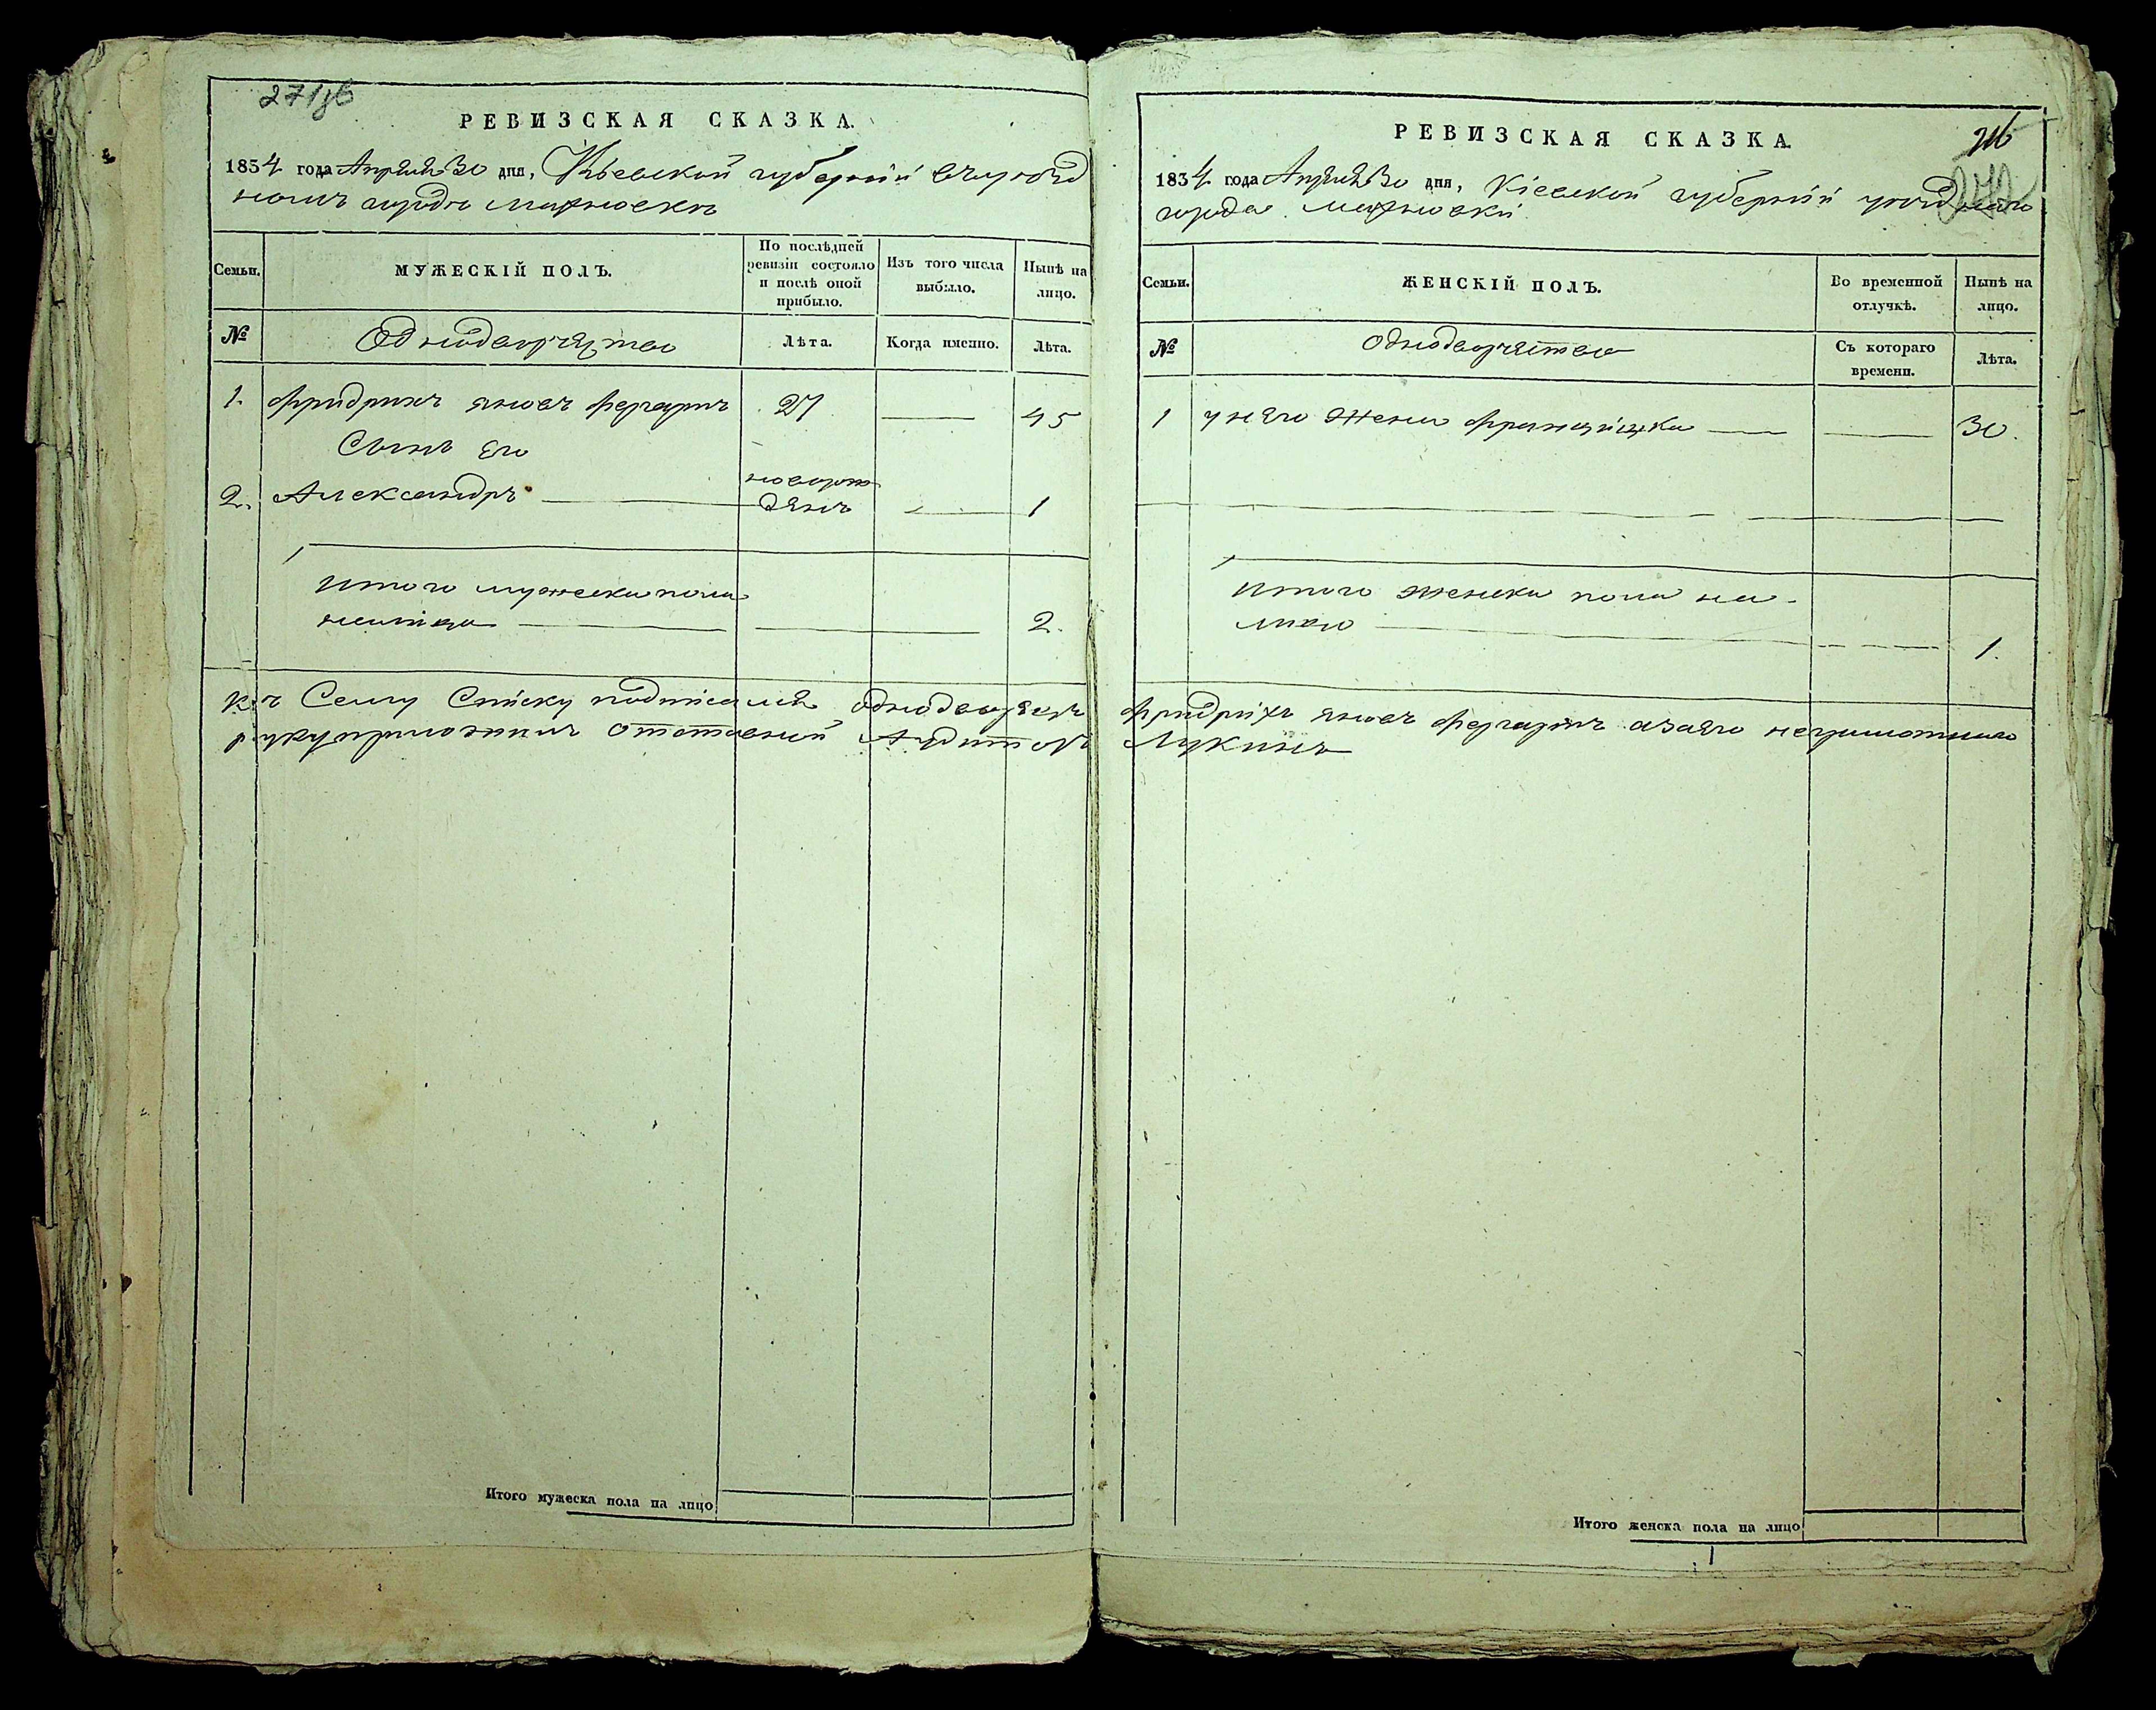 271 об
РЕВИЗСКАЯ СКАЗКА.
1834 года Апреля 30 дня, Кіевской губерніи въ уезд
номъ городе Махновке
Семьи.
МУЖЕСКІЙ ПОЛЪ.
По послѣдней ревизіи состояло и послѣ оной прибыло.
Изъ того числа выбыло.
Нынѣ на лицо.
№
Однодворчество
Лѣта.
Когда именно.
Лѣта.
1. Фридрихъ Яковъ 27 45
Сынъ его
2. Александръ новорож
денъ 1
Итого мужеска пола
налицо 2.
РЕВИЗСКАЯ СКАЗКА.
1834 года Апреля 30 дня, Кіевской губерніи уезднаго
города Махновки
Семьи.
ЖЕНСКІЙ ПОЛЪ.
Во временной отлучкѣ.
Нынѣ на лицо.
№
Однодворчество
Съ котораго времени.
Лѣта.
1 у него жена Францишка 30.
Итого женска пола на-
лицо 1.
Къ Сему Списку подписался однодворецъ Фридрихъ Яковъ а за его неграмотнаго
руку приложилъ отставной Аудиторъ Лукинъ
Итого мужеска пола на лицо
Итого женска пола на лицо